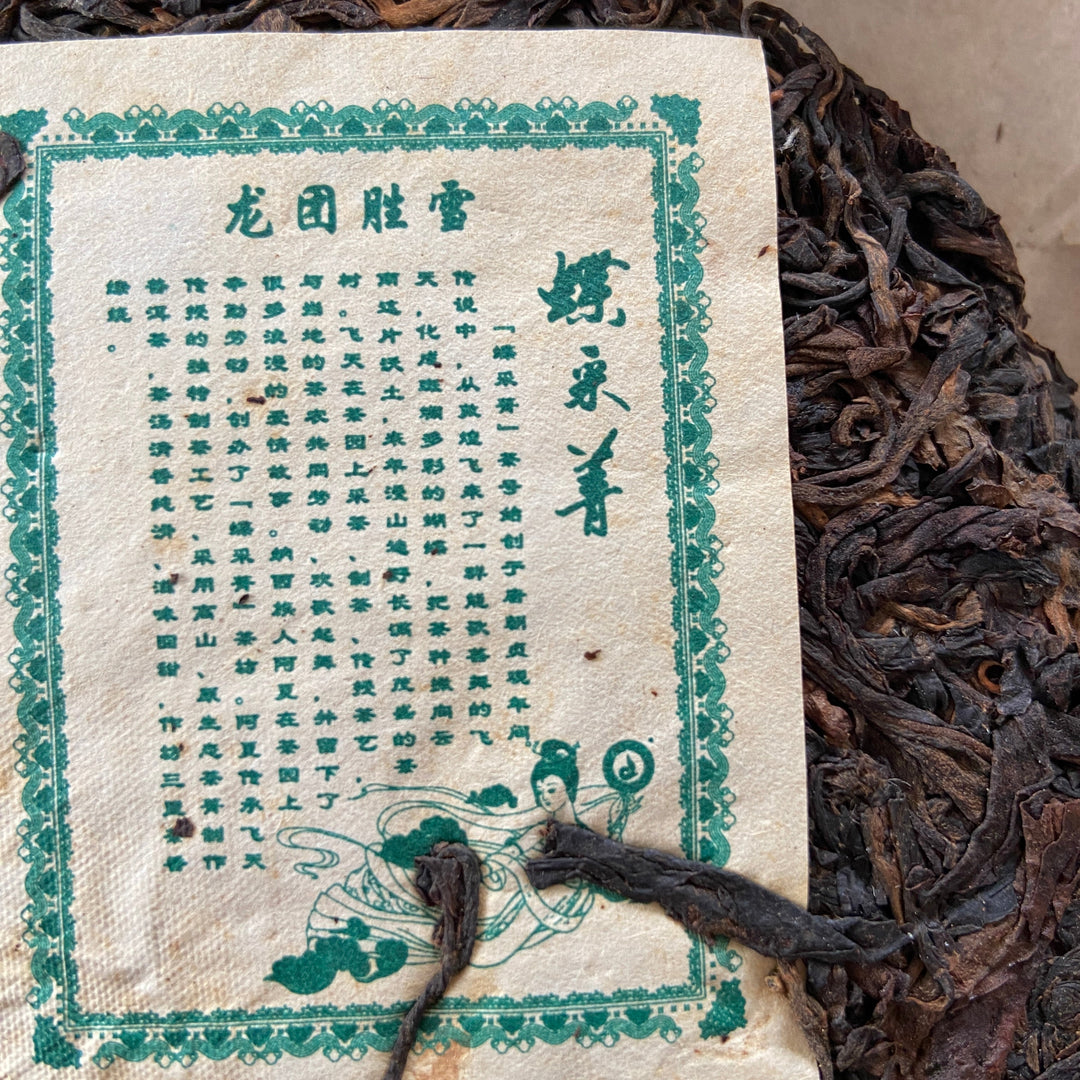 龙团胜雪
蝶采菁
「蝶采菁」茶号始创于唐朝贞观年间
传说中，从敦煌飞来了一群能歌善舞的飞
天，化成斑斓多彩的蝴蝶，把茶种撒向云
南这片沃土，来年漫山遍野长满了茂盛的茶
树。飞天在茶园上采茶、制茶、传授茶艺，
与当地的茶农共同劳动、欢歌起舞，并留下了
很多浪漫的爱情故事。纳西族人阿夏在茶园上
辛勤劳动，创办了「蝶采菁」茶坊。阿夏传承飞天
传授的独特制茶工艺，采用高山、原生态茶菁制作
普洱茶，茶汤清香纯净、滋味回甜，作坊三里茶香
缭绕。